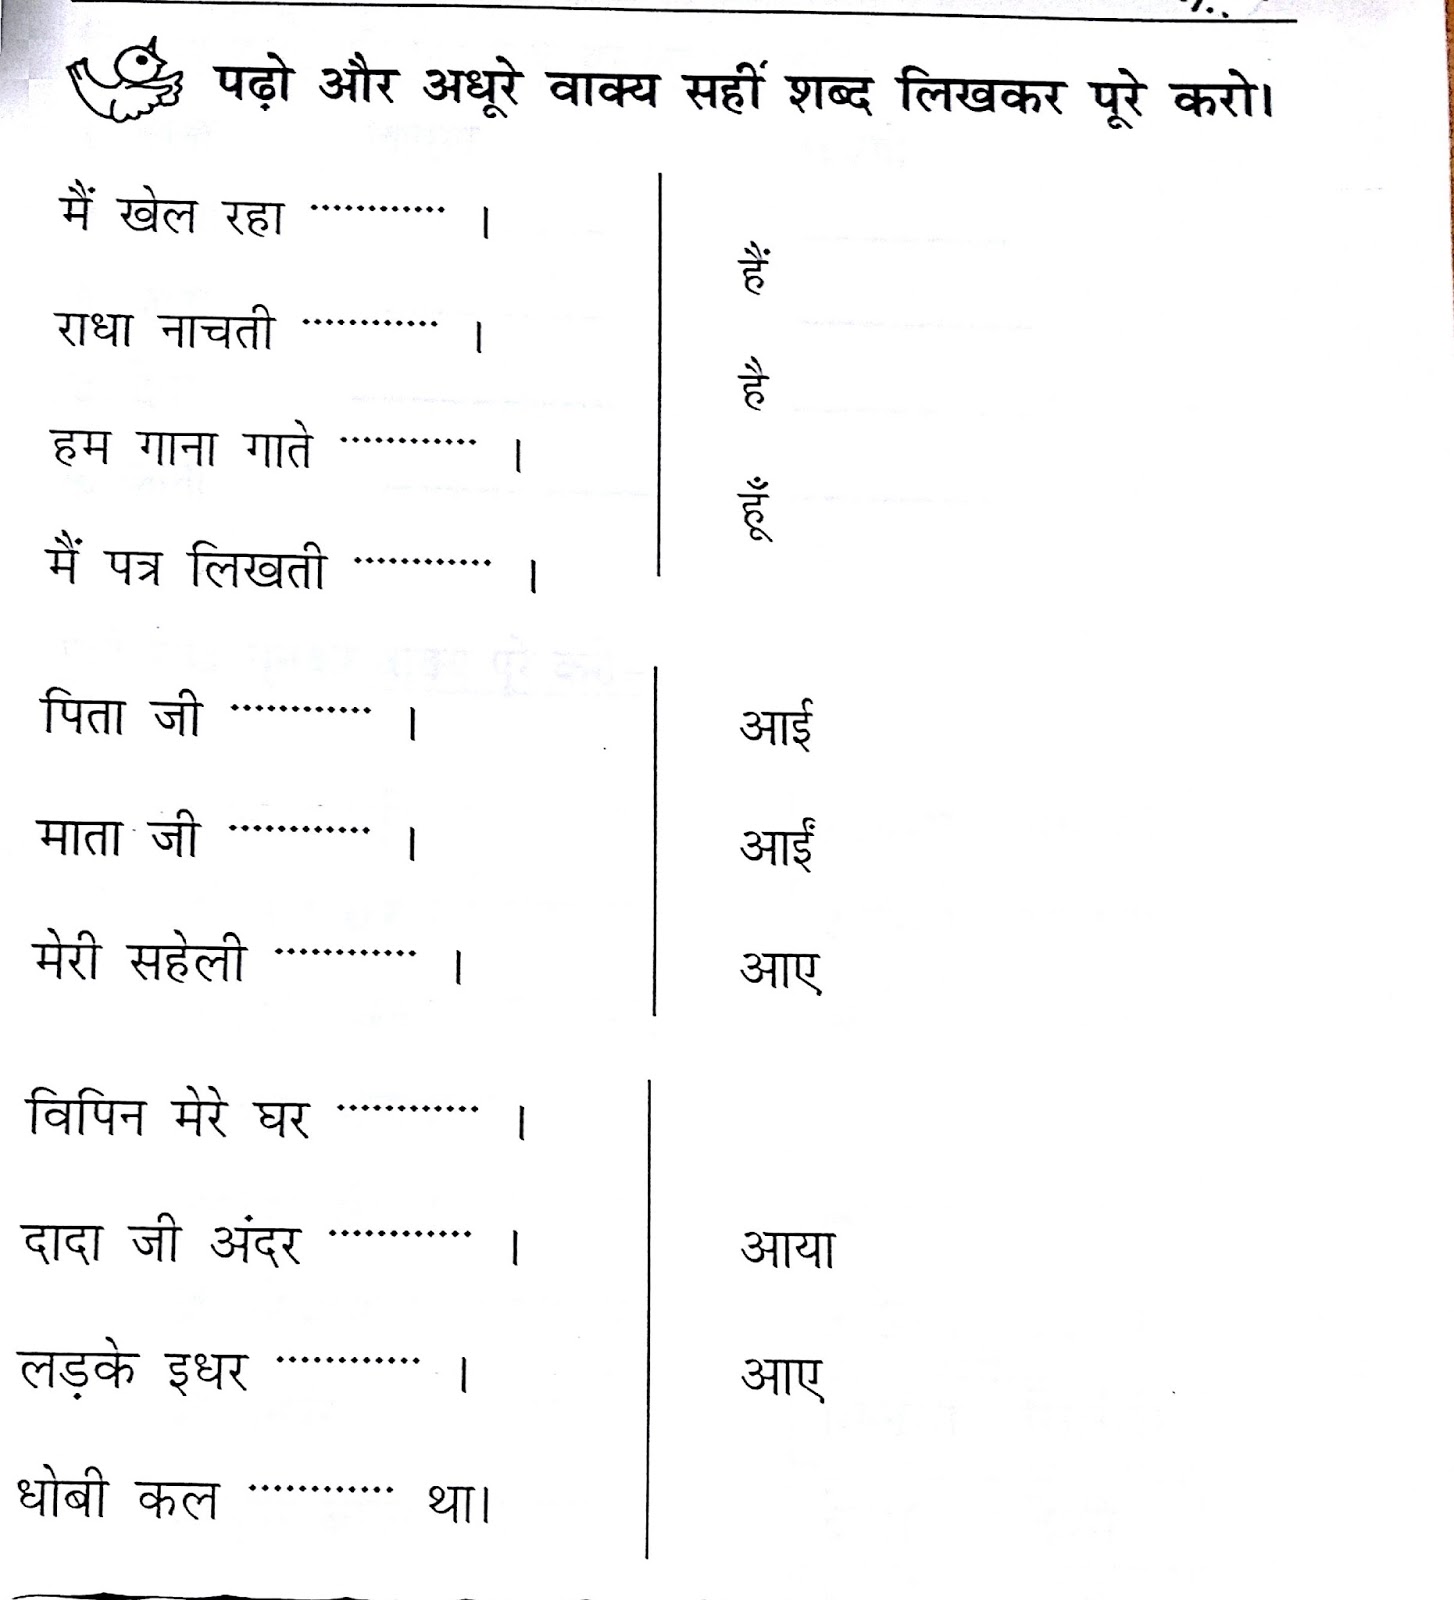 पढ़ो और अधूरे वाक्य सहीं शब्द लिखकर पूरे करो।
मैं खेल रहा ............ ।
राधा नाचती ............ ।
हम गाना गाते ............ ।
मैं पत्र लिखती ............ ।
हैं
है
हूँ
पिता जी ............ ।
माता जी ............ ।
मेरी सहेली ............ ।
आई
आईं
आए
विपिन मेरे घर ............ ।
दादा जी अंदर ............ ।
लड़के इधर ............ ।
धोबी कल ............ था।
आया
आए